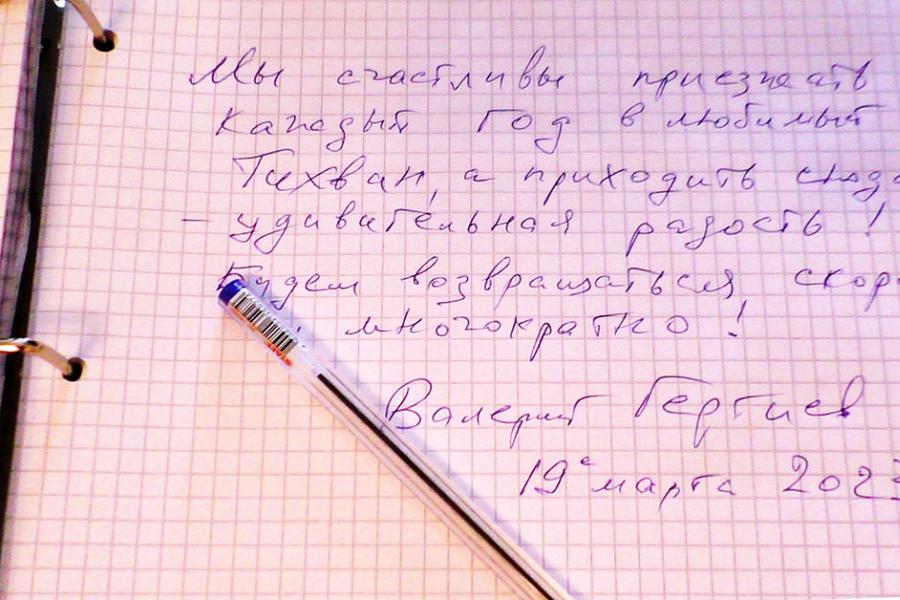 Мы счастливы приезжать
каждый год в любимый
Тихвин, а приходить сюда
– удивительная радость!
Будем возвращаться, скоро
многократно!
Валерий Гергиев
19 марта 2023